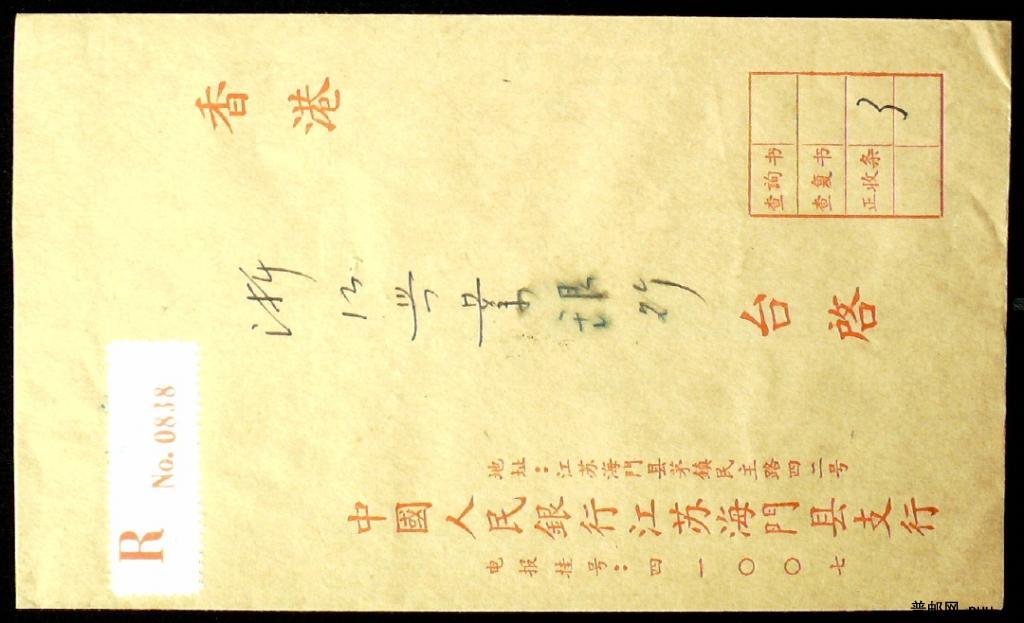 香港
浙江兴业银行
台启
查詢书
查复书
正收条
3
地址：江苏海門县茅镇民主路四二号
中國人民銀行江苏海門县支行
电报挂号：四一〇〇七
R No. 0838
普邮网